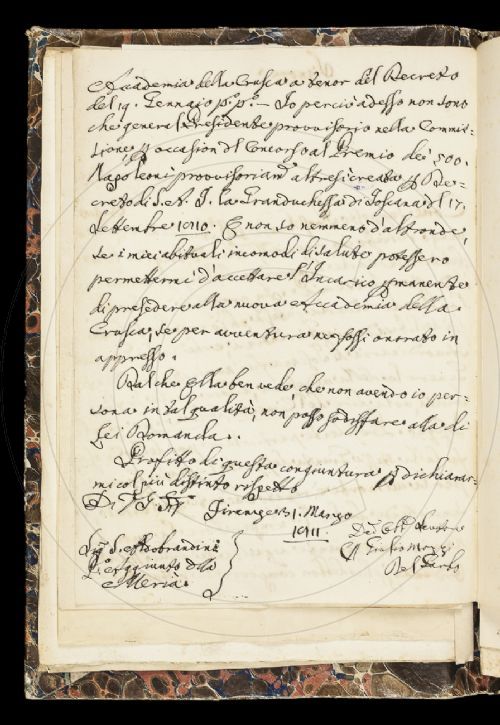 Accademia della Crusca a tenor del Decreto
del 19. Gennaio p.p. — Io perciò adesso non sono
che general Presidente provvisorio nella Commis=
sione p occasion dl Concorso al Premio dei 500.
Napoleoni provvisoriam altresì creata p De=
creto di S.A.I. la Granduchessa di Toscana dl 17,
Settembre 1810. E non so nemmeno d'altronde,
se i miei abituali incomodi di salute potessero
permettermi d'accettare l'Incarico pmanente
di presedere alla nuova Accademia della
Crusca, se per avventura ne fossi onorato in
appresso.
Dal che Ella ben vede, che non avendo io per=
sona in tal qualità, non posso sodisfare alla di
Lei Domanda.
Profitto di questa congiuntura p dichiarar=
mi col più distinto rispetto
Di V. S.
Firenze 31. Marzo
1811
Sig. Aldobrandini
Aggiunto dlla
Meria
Del Garbo